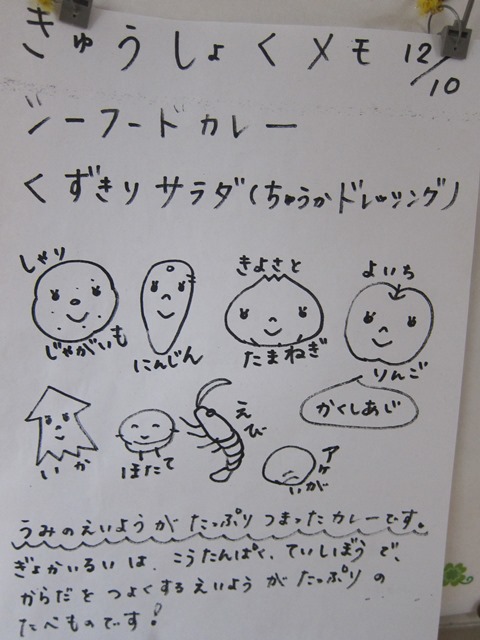 きゅうしょくメモ 12/10
シーフードカレー
くずきりサラダ(ちゅうかドレッシング)
しゃり
きよさと
よいち
じゃがいも
にんじん
たまねぎ
りんご
かくしあじ
いか
ほたて
えび
アサリ
いが
うみのえいようがたっぷりつまったカレーです。
ぎょかいるいは、こうたんぱく、ていしぼうで、
からだをつよくするえいようがたっぷりの
たべものです!